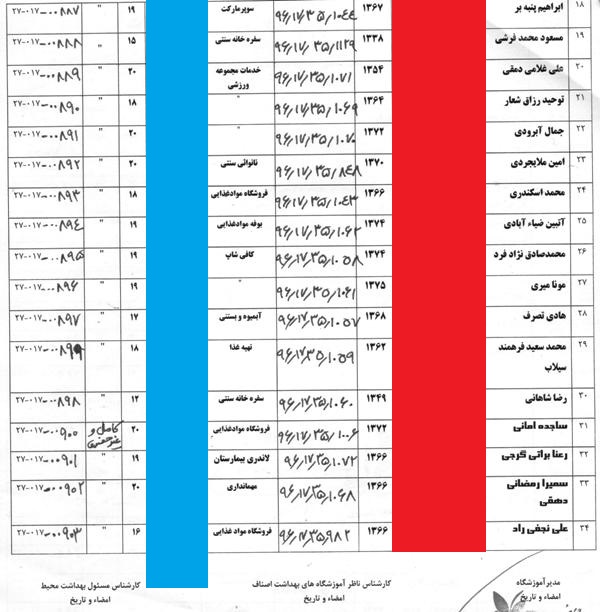 ۱۸ ابراهیم پنبه بر ۱۳۶۷ ۹۶٫۱۷٫۳۵٫۱۰۴۴ سوپرمارکت ۱۹ " ۲۷-۰۱۷-۰۰۸۸۷
۱۹ مسعود محمد قرشی ۱۳۳۸ ۹۶٫۱۷٫۳۵٫۱۱۲۹ سفره خانه سنتی ۱۵ " ۲۷-۰۱۷-۰۰۸۸۸
۲۰ علی غلامی دمقی ۱۳۵۴ ۹۶٫۱۷٫۳۵٫۱۰۷۱ خدمات مجموعه ۲۰ " ۲۷-۰۱۷-۰۰۸۸۹
ورزشی
۲۱ توحید رزاق شعار ۱۳۶۴ ۹۶٫۱۷٫۳۵٫۱۰۶۹ " ۱۸ " ۲۷-۰۱۷-۰۰۸۹۰
۲۲ جمال آبرودی ۱۳۷۲ ۹۶٫۱۷٫۳۵٫۱۰۷۰ " ۲۰ " ۲۷-۰۱۷-۰۰۸۹۱
۲۳ امین ملایجردی ۱۳۷۰ ۹۶٫۱۷٫۳۵٫۸۴۸ نانوائی سنتی ۲۰ " ۲۷-۰۱۷-۰۰۸۹۲
۲۴ محمد اسکندری ۱۳۶۶ ۹۶٫۱۷٫۳۵٫۱۰۴۳ فروشگاه موادغذایی ۱۸ " ۲۷-۰۱۷-۰۰۸۹۳
۲۵ آئیین ضیاء آبادی ۱۳۷۴ ۹۶٫۱۷٫۳۵٫۱۰۶۲ بوفه موادغذایی ۱۹ " ۲۷-۰۱۷-۰۰۸۹۴
۲۶ محمدصادق نژاد فرد ۱۳۷۴ ۹۶٫۱۷٫۳۵٫۱۰۵۸ کافی شاپ ۱۹ " ۲۷-۰۱۷-۰۰۸۹۵
۲۷ مونا میری ۱۳۷۵ ۹۶٫۱۷٫۳۵٫۱۰۶۱ " ۱۹ " ۲۷-۰۱۷-۰۰۸۹۶
۲۸ هادی تصرف ۱۳۶۸ ۹۶٫۱۷٫۳۵٫۱۰۵۷ آبمیوه و بستنی ۱۷ " ۲۷-۰۱۷-۰۰۸۹۷
۲۹ محمد سعید فرهمند ۱۳۶۲ ۹۶٫۱۷٫۳۵٫۱۰۵۹ تهیه غذا ۱۸ " ۲۷-۰۱۷-۰۰۸۹۹
سیلاب
۳۰ رضا شاهانی ۱۳۴۹ ۹۶٫۱۷٫۳۵٫۱۰۶۰ سفره خانه سنتی ۱۲ " ۲۷-۰۱۷-۰۰۸۹۸
۳۱ ساجده امانی ۱۳۷۲ ۹۶٫۱۷٫۳۵٫۱۰۰۶ فروشگاه موادغذایی ۲۰ کامل و ۲۷-۰۱۷-۰۰۹۰۰
غیرحضوری
۳۲ رعنا براتی گرجی ۱۳۶۶ ۹۶٫۱۷٫۳۵٫۱۰۷۲ لاندری بیمارستان ۱۹ " ۲۷-۰۱۷-۰۰۹۰۱
۳۳ سمیرا رمضانی ۱۳۶۶ ۹۶٫۱۷٫۳۵٫۱۰۶۸ مهمانداری ۲۰ " ۲۷-۰۱۷-۰۰۹۰۲
دهقی
۳۴ علی نجفی راد ۱۳۶۶ ۹۶٫۱۷٫۳۵٫۹۸۲ فروشگاه مواد غذایی ۱۶ " ۲۷-۰۱۷-۰۰۹۰۳
مدیرآموزشگاه کارشناس ناظر آموزشگاه های بهداشت اصناف کارشناس مسئول بهداشت محیط
امضاء و تاریخ امضاء و تاریخ امضاء و تاریخ